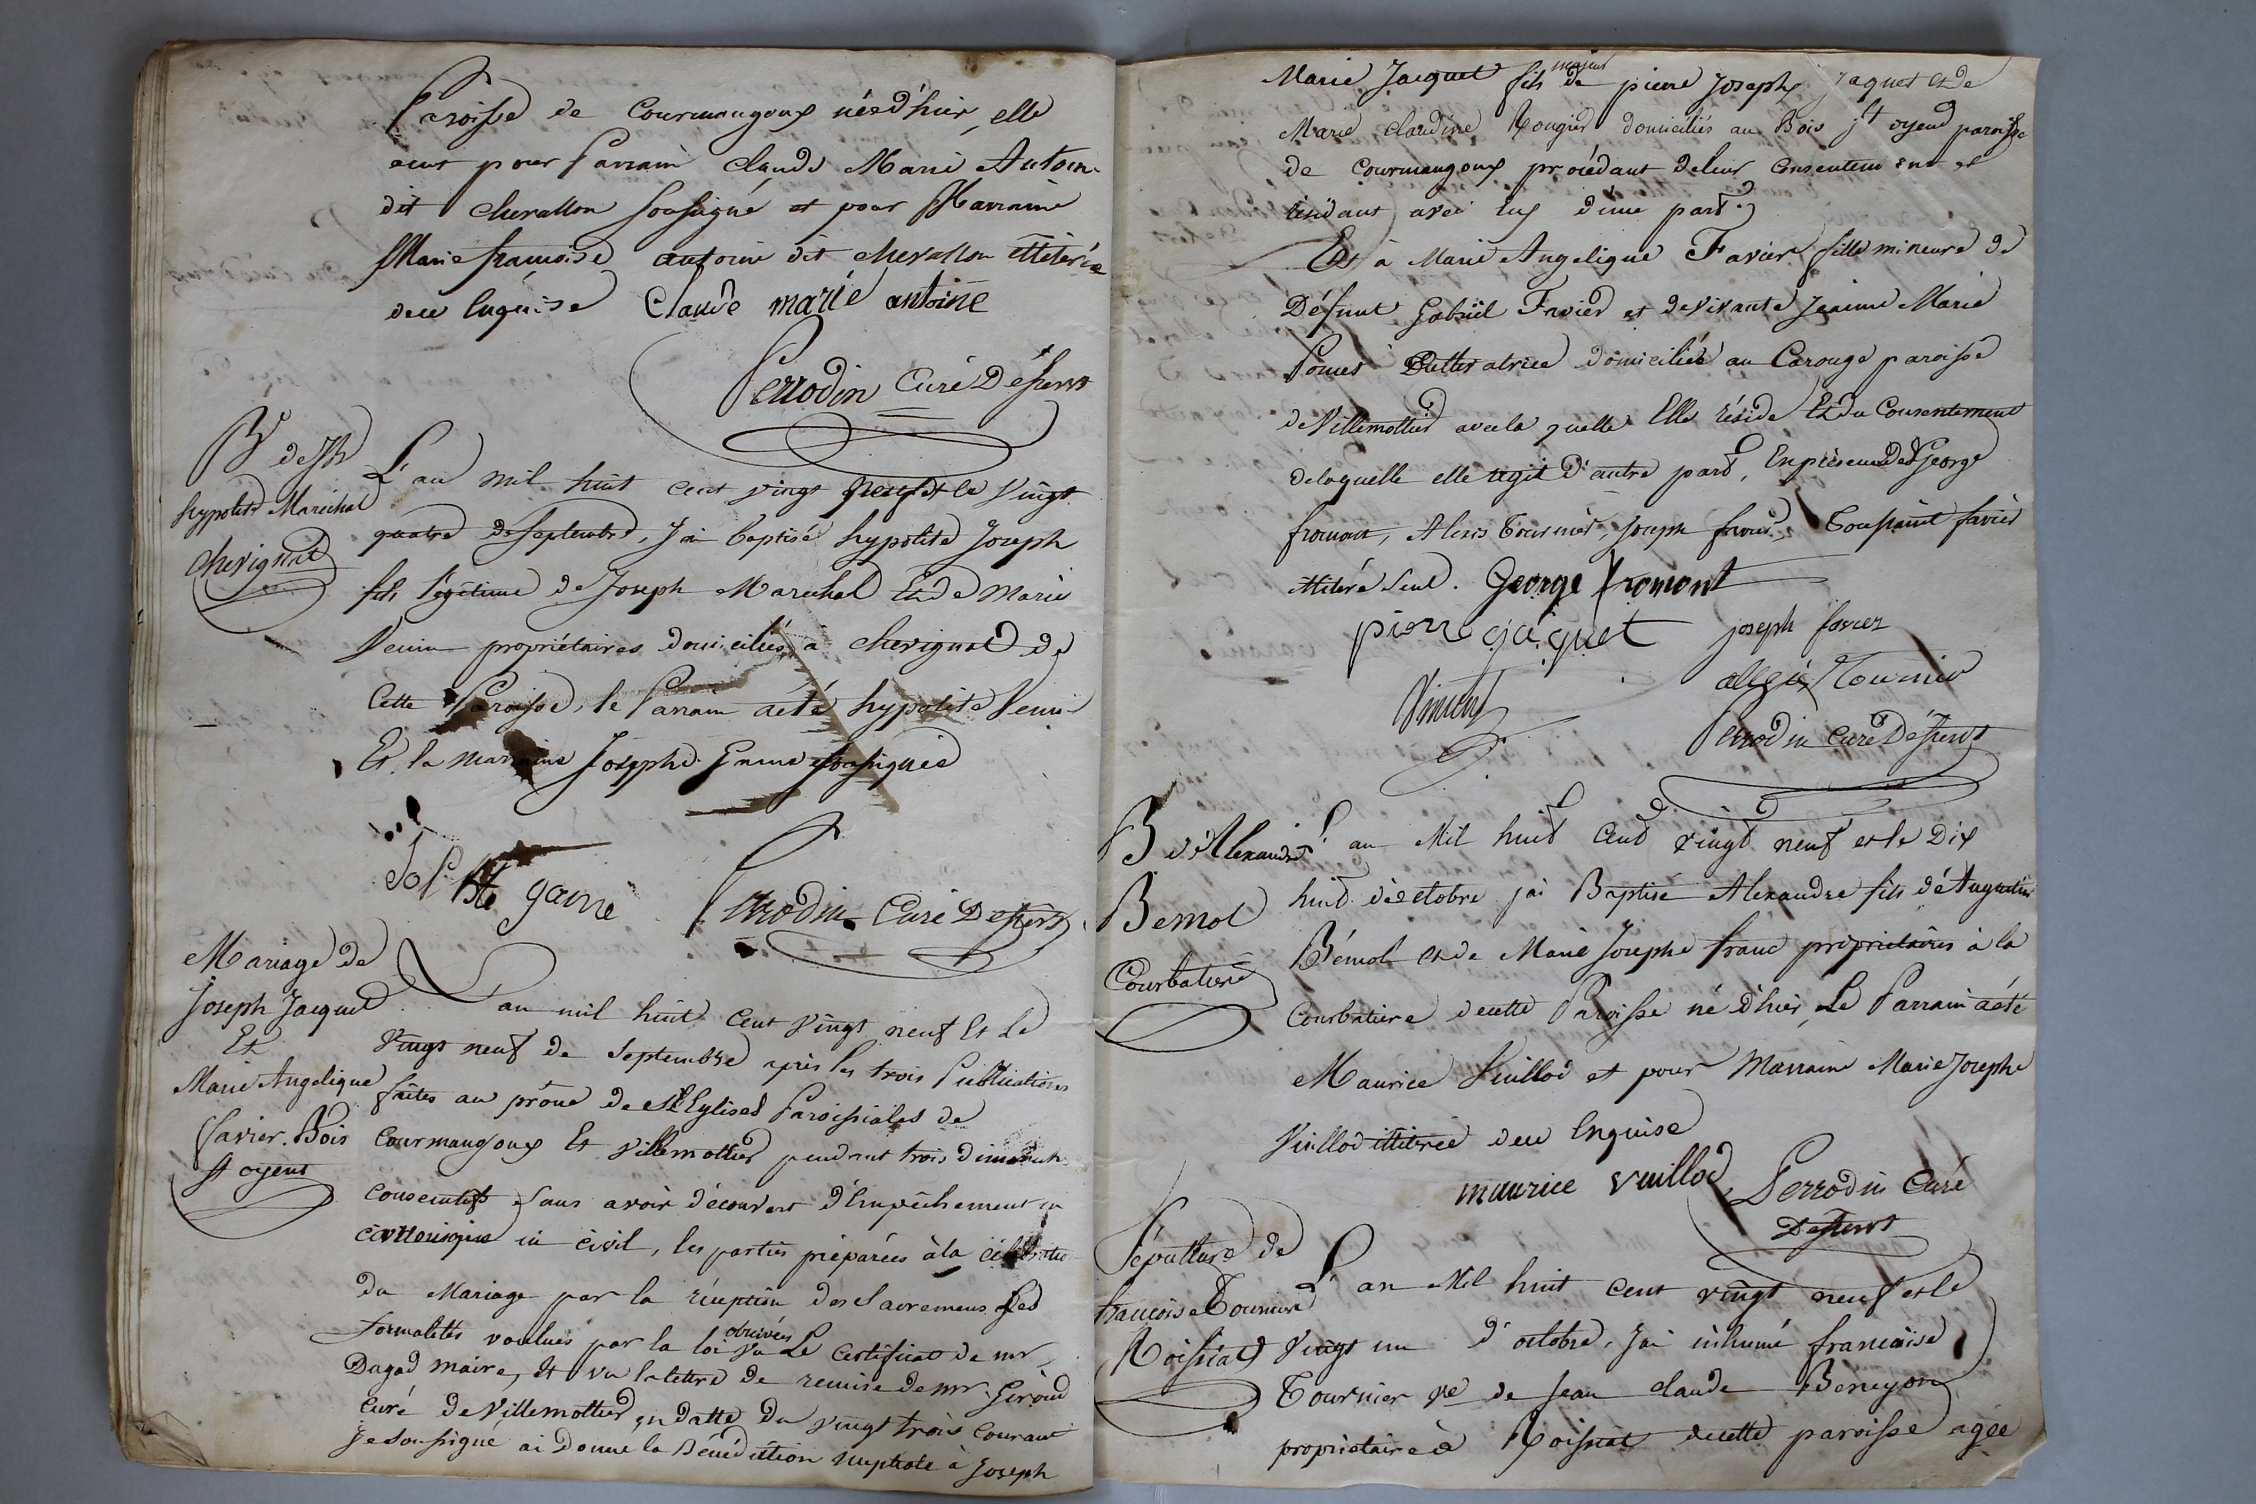 Paroisse de Courmangoux née d'hier, elle
eut pour Parrain Claude Marie Antoine
dit Chevallon soussigné et pour Marraine
Marie françoise antoine dit chevallon illitérée
de ce Enquise Claude marie antoine
Perrodin Curé Desserv^t
B^e de J^h
hypolite Maréchal
Chevignat
L'an mil huit cent vingt neuf et le vingt
quatre de septembre, J'ai baptisé hypolite Joseph
fils légitime de Joseph Maréchal Et de Marie
Venin propriétaires domiciliés à Chevignat de
Cette Paroisse, le Parrain a été hypolite Venin
Et la marraine Josephe Game soussignés
game Perrodin Curé Desserv^t
Mariage de
Joseph Jacquet
Et
Marie Angelique
favier. Bois
s^t oyent
L'an mil huit Cent vingt neuf Et le
vingt neuf de septembre après les trois Publications
faites au prône des Eglises Paroissiales de
Courmangoux Et Villemottier pendant trois dimanches
consecutifs sans avoir découvert d'Empêchement ni
ni civil, les parties préparées à la célébration
du Mariage par la réception des Sacremens Les
formalités voulues par la loi observées Vu Le Certificat de mr
Dagad maire, Et vu la lettre de remise de mr. Giroud
curé de Villemottier en datte du vingt trois Courant
Je soussigné ai Donné la Bénédiction nuptiale à Joseph
Marie Jacquet fils majeur de pierre Joseph Jaquet et de
Marie Claudine Rougier domiciliés au Bois s^t oyend paroisse
de Courmangoux procédant de leur Consentement et
résidant avec eux d'une part
Et à Marie Angelique Favier fille mineure de
Défunt Gabriel Favier et de vivante Jeanne Marie
Pomet domiciliée au Carouge paroisse
de Villemottier avec la quelle Elle réside Et du Consentement
de laquelle elle agit D'autre part, En présence De George
fromont, Alexis Tournier, Joseph favier, Toussaint favier
illitéré seul. George fromont
pierre jaquet joseph favier
Vincent Tournier
Perrodin Curé Desserv^t
B^e d'Alexandre
Bemol
Courbatiere
L'an Mil huit Cent vingt neuf et le Dix
huit d'octobre jai Baptisé Alexandre fils d'Augustin
Bémol et de Marie Josephe franc propriétaires à la
Courbatiere de cette Paroisse né d'hier, Le Parrain a été
Maurice Vuillod et pour Marraine Marie Josephe
Vuillod illitérée de ce Enquise
maurice vuillod Perrodin Curé
Desserv^t
Sépulture de
francoise Tournier
Roissiat
L'an Mil huit cent vingt neuf et le
vingt un d'octobre, J'ai inhumé francoise
Tournier v^e de Jean claude Beneyon
propriétaire à Roissiat de cette paroisse agée